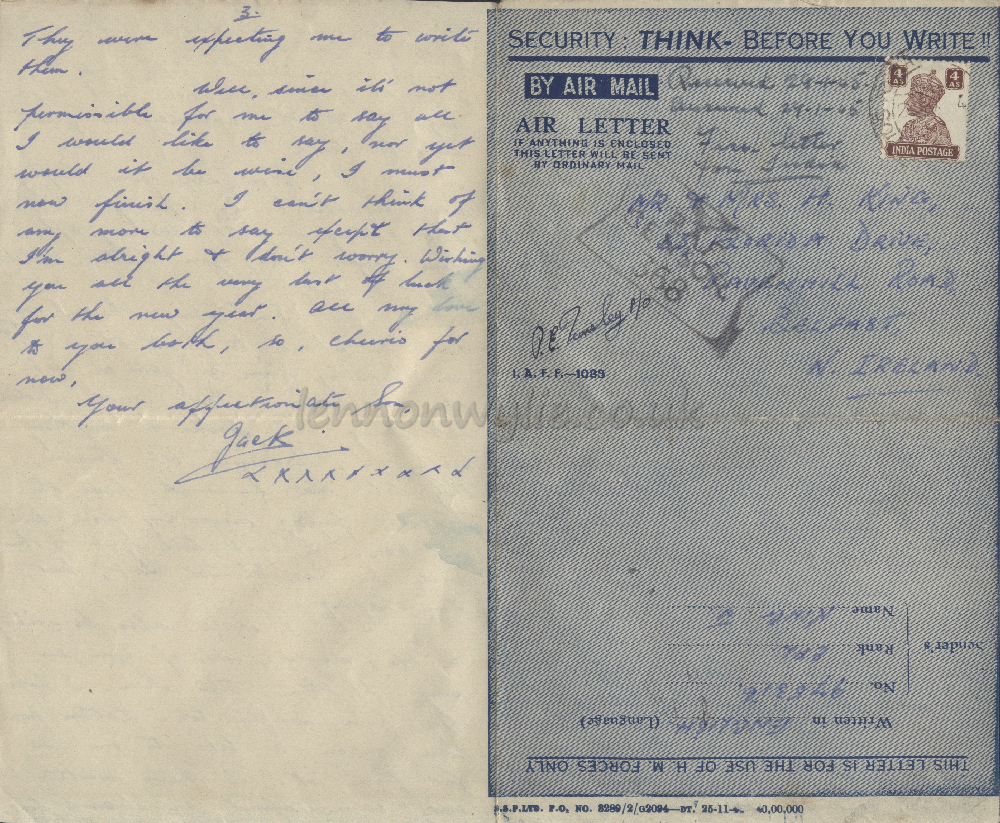 3.
They were expecting me to write
them.
Well, since it's not
permissible for me to say all
I would like to say, nor yet
would it be wise, I must
now finish. I can't think of
any more to say except that
I'm alright & don't worry. Wishing
you all the very best of luck
for the new year. All my love
to you both, so, cheerio for
now,
Your affectionate Son
Jack
x x x x x x x x x x
lennonwylie.co.uk
SECURITY: THINK- BEFORE YOU WRITE!!
BY AIR MAIL
Received 29-1-45
Answered 29-1-45
4 AS 4 AS
INDIA POSTAGE
AIR LETTER
IF ANYTHING IS ENCLOSED
THIS LETTER WILL BE SENT
BY ORDINARY MAIL
First letter
from India
MR & MRS. H. KING,
FLORIDA DRIVE,
RAVENHILL ROAD,
BELFAST
N. IRELAND.
I. A. F. F.—1083
Sender's
Name KING J.
Rank CPL
No. 978316
Written in ENGLISH (Language)
THIS LETTER IS FOR THE USE OF H. M. FORCES ONLY
S.P.LTD. P.O. NO. 8289/2/G2094—DT. 25-11-4 40,00,000